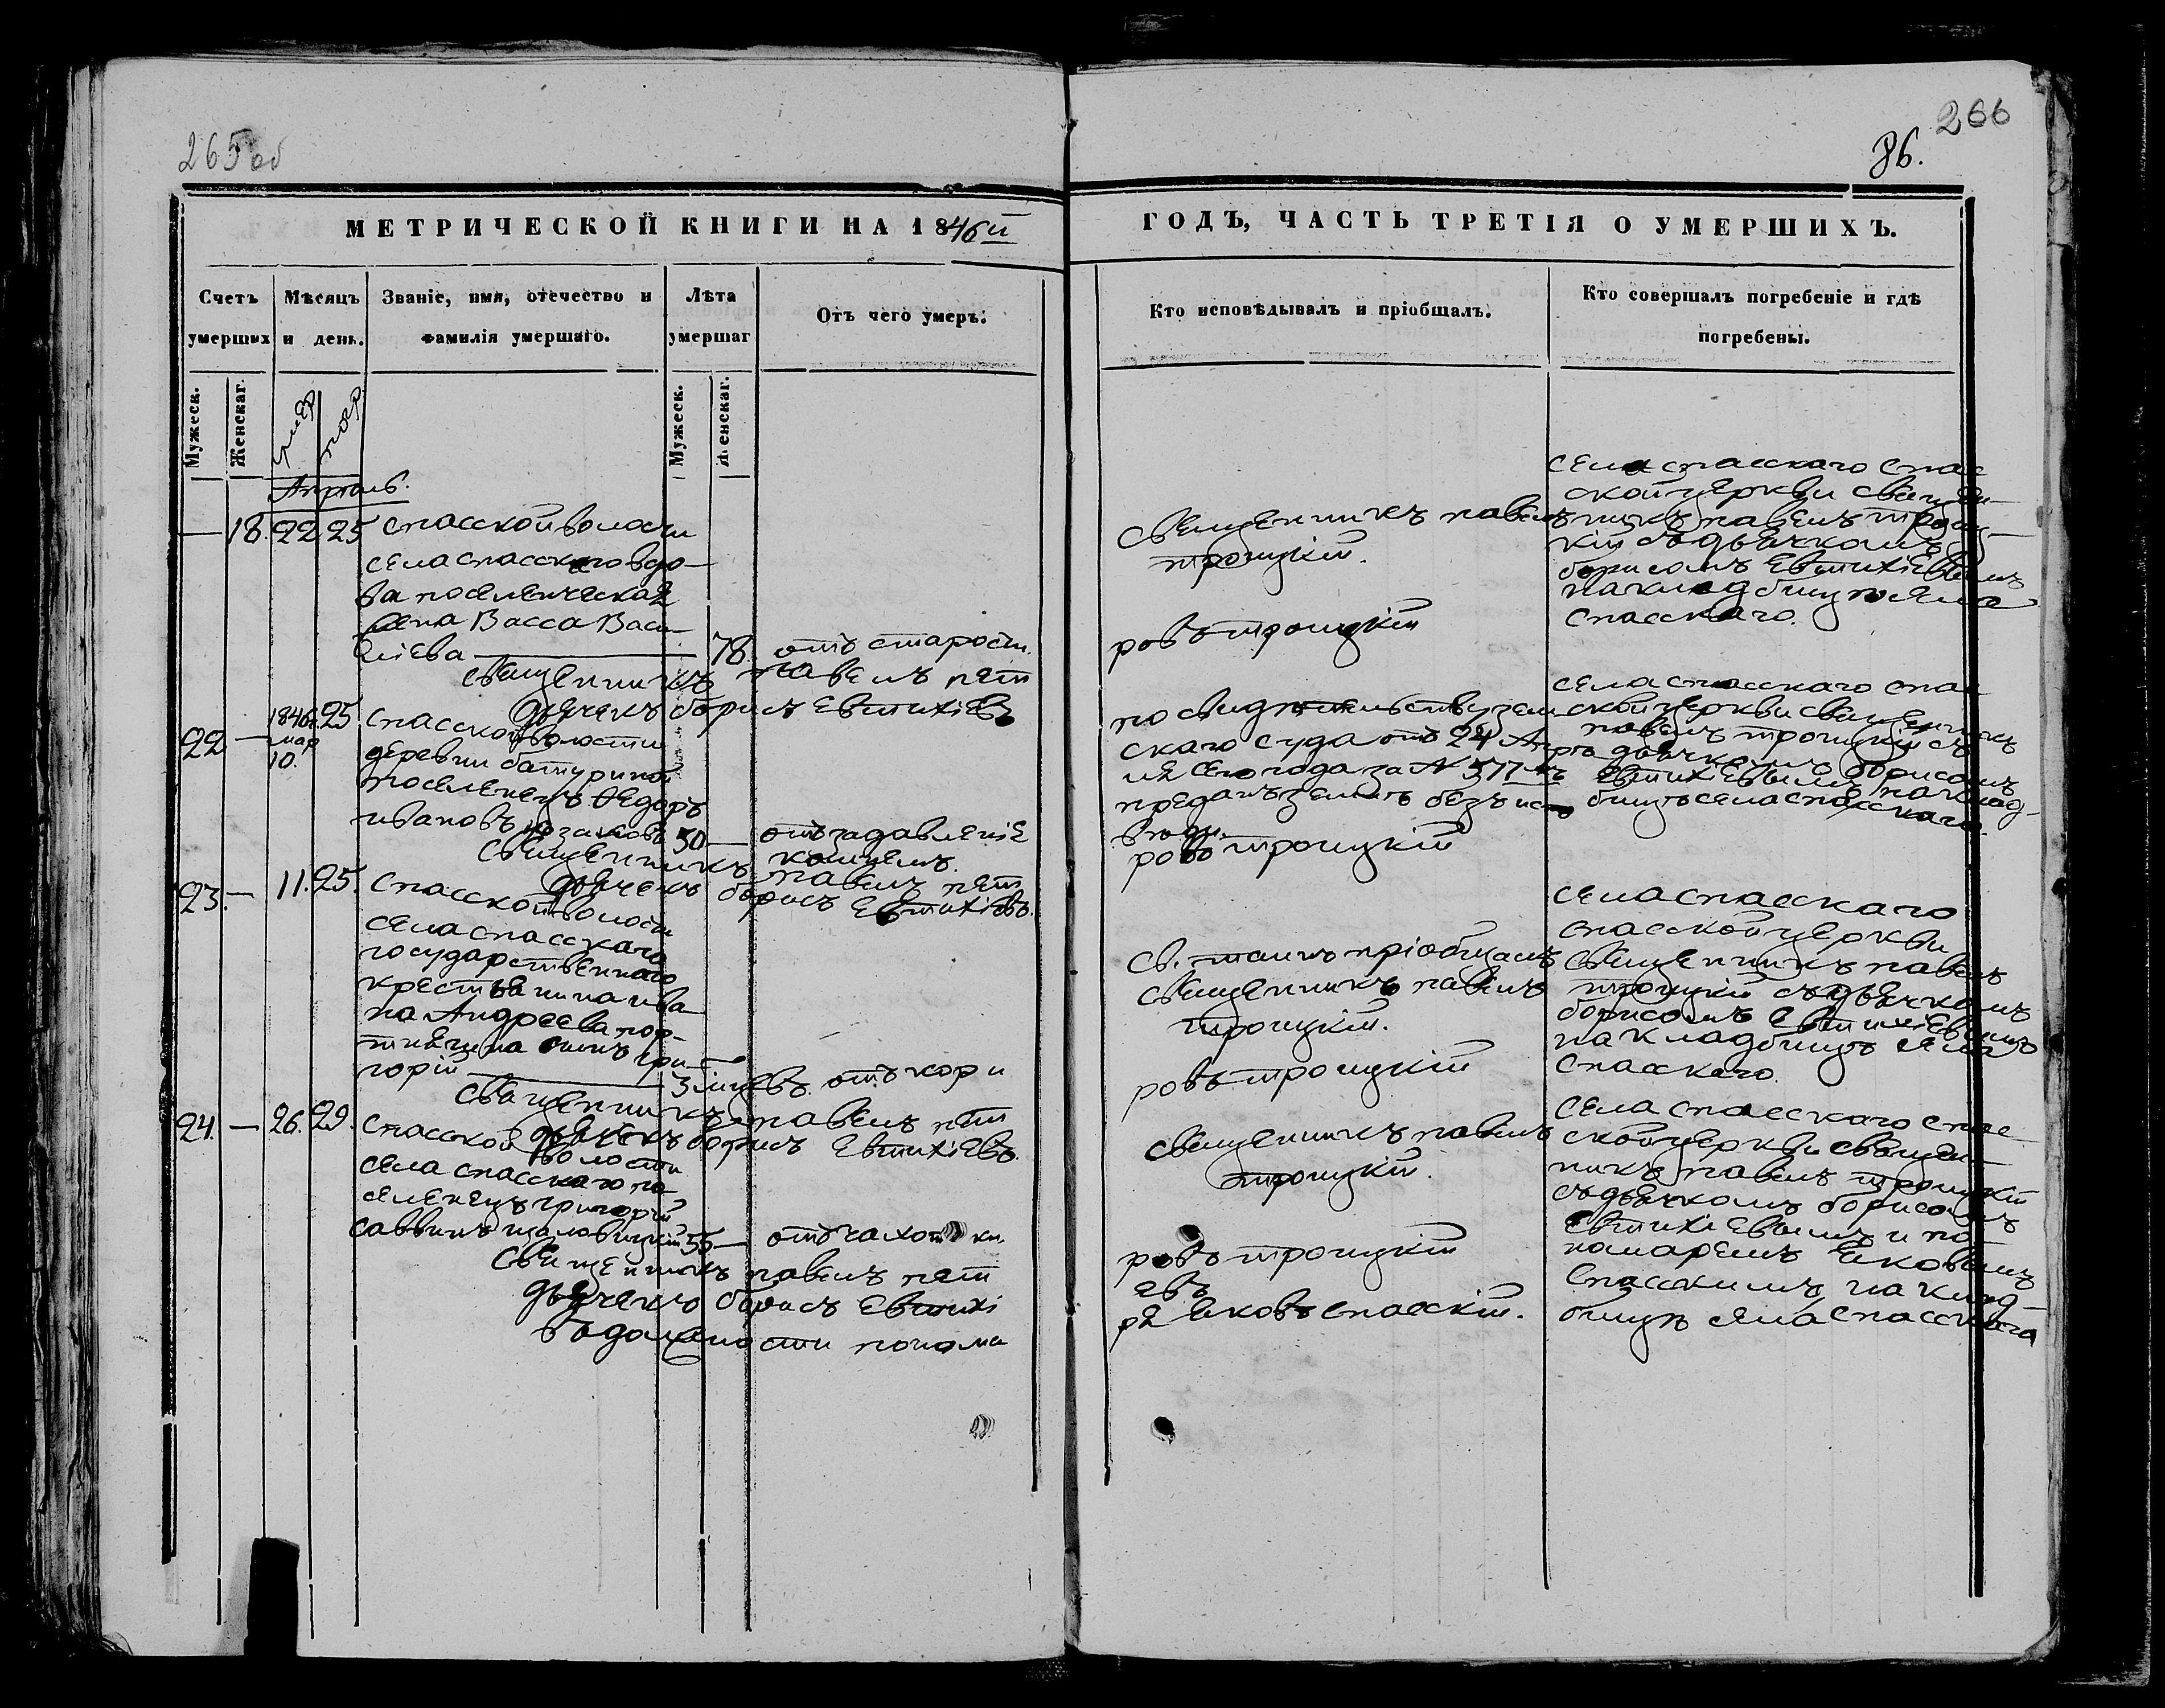 265 об
266
86.
МЕТРИЧЕСКОЙ КНИГИ НА 1846й
ГОДЪ, ЧАСТЬ ТРЕТІЯ О УМЕРШИХЪ.
Счетъ умерших
Мѣсяцъ и день.
Званіе, имя, отечество и фамилія умершаго.
Лѣта умершаг
Отъ чего умеръ.
Кто исповѣдывалъ и пріобщалъ.
Кто совершалъ погребеніе и гдѣ погребены.
Мужеск.
Женскаг.
умер
погр
Мужеск.
Женскаг.
Апрѣль.
— 18. 22 25 Спасской волости
села спасскаго вдо-
ва поселенческая
жена Васса Васи-
лiева — 78. отъ старости.
Священникъ павелъ
троицкій.
села спасскаго спас
ской церкви священ-
никъ павелъ троиц-
кій съ дьячкомъ
борисомъ Евтихіевымъ
на кладбищѣ села
спасскаго.
Священникъ павелъ пет
ровъ троицкій
дьячекъ борисъ Евтихіевъ
22 — 1846г. мар 10. 25 спасской волости
деревни батуриной
поселенецъ Федоръ
ивановъ козаковъ 50 — отъ задавленiе
концемъ.
по свидѣтельству зем-
скаго суда отъ 24 Апрѣ
ля сего года за № 577мъ
преданъ землѣ безъ испо
вѣди.
села спасскаго спас
ской церкви священникъ
павелъ троицкій съ
дьячкомъ борисомъ
Евтихіевымъ на клад-
бищѣ села спасскаго.
Священникъ павелъ пет
ровъ троицкій
дьячекъ борисъ Евтихіевъ.
23. — 11. 25. спасской волости
села спасскаго
государственнаго
крестьянина ива
на Андреева пор-
тнягина сынъ гри-
горій — 3 мцевъ. отъ кори
св. таинъ пріобщалъ
священникъ павелъ
троицкій.
села спасскаго
спасской церкви
священникъ павелъ
троицкій съ дьячкомъ
борисомъ Евтихіевымъ
на кладбищѣ села
спасскаго.
Священникъ павелъ пет
ровъ троицкій
дьячекъ борисъ Евтихіевъ.
24. — 26. 29. спасской волости
села спасскаго по
селенецъ григорій
саввинъ 55 — отъ чахотки.
священникъ павелъ
троицкій.
села спасскаго спас
ской церкви священ-
никъ павелъ троицкій
съ дьячкомъ борисомъ
Евтихіевымъ и по
намаремъ Яковымъ
Спасскимъ на клад-
бищѣ села спасскаго
Священникъ павелъ пет
ровъ троицкій
дьячекъ борисъ Евтихі
евъ
въ должности понома
ря Яковъ спасскій.